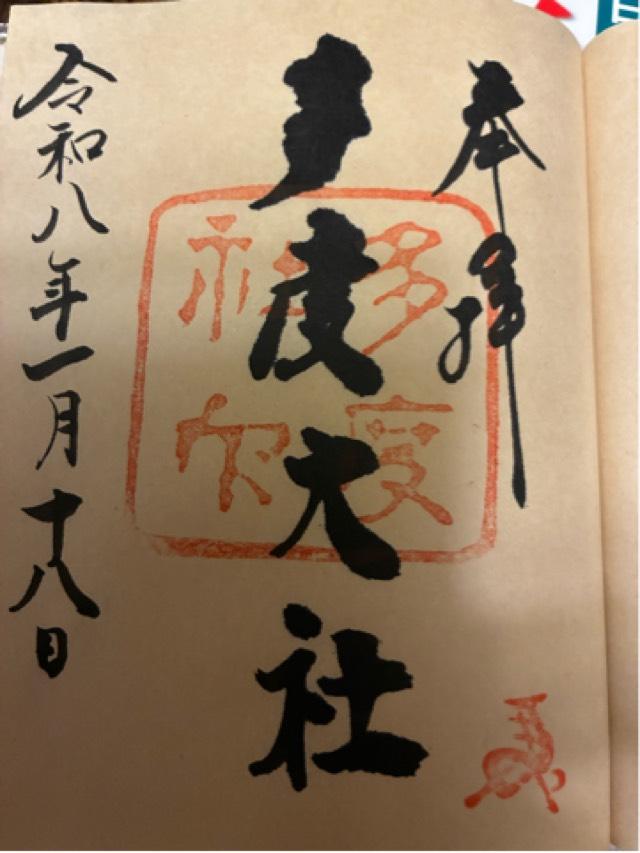 奉拝
多度大社
令和八年一月十八日
多度
神社